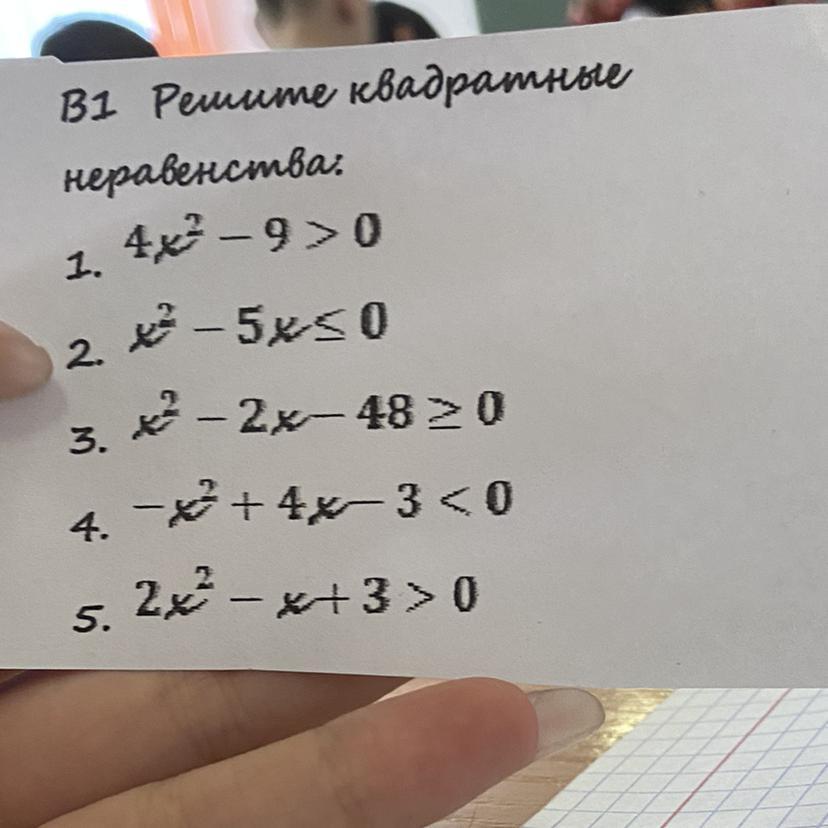 В1 Решите квадратные
неравенства:
1. 4x² − 9 > 0
2. x² − 5x ≤ 0
3. x² − 2x − 48 ≥ 0
4. −x² + 4x − 3 < 0
5. 2x² − x + 3 > 0